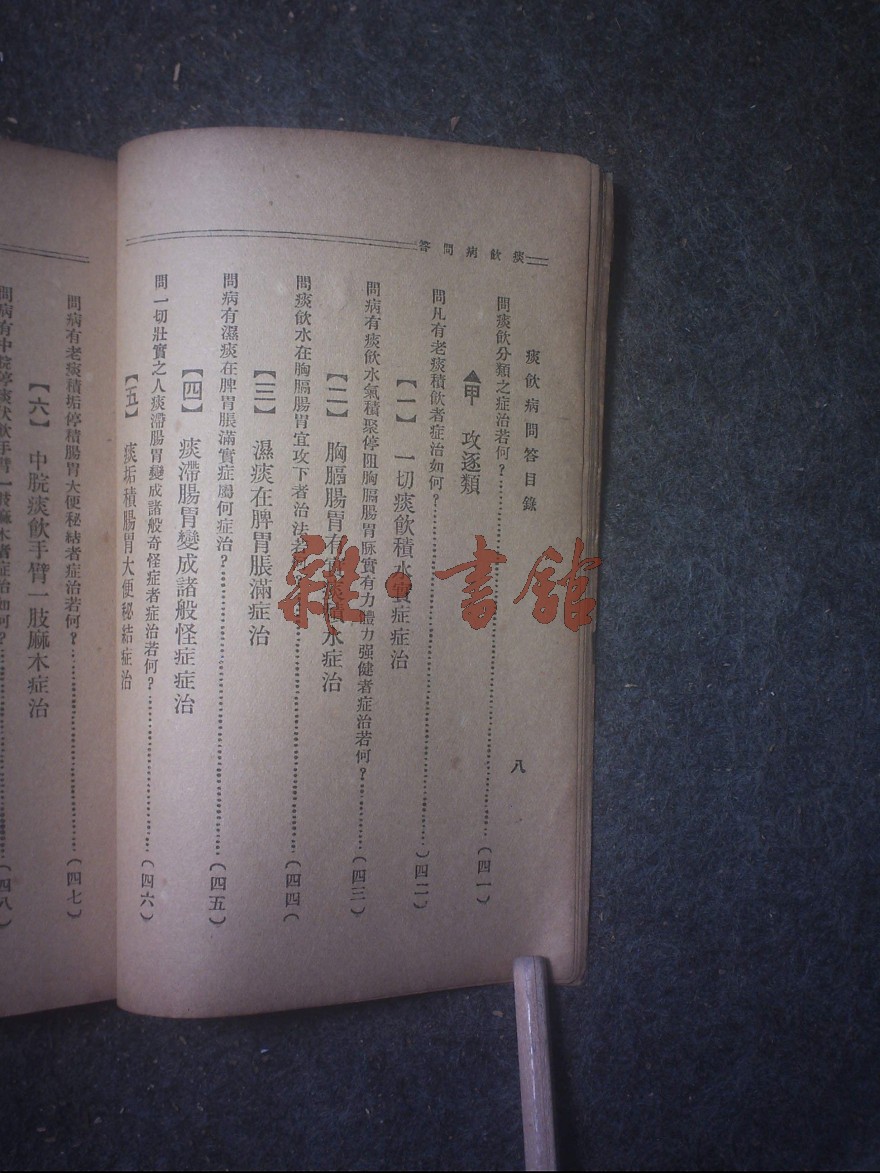 痰飲病問答
痰飲病問答目錄
八
問痰飲分類之症治若何?(四一)
▲甲 攻逐類
問凡有老痰積飲者症治如何?(四二)
【一】 一切痰飲積水實症症治
問病有痰飲水氣積聚停阻胸膈腸胃脈實有力體力强健者症治若何?(四三)
【二】 胸膈腸胃有水症治
問痰飲水在胸膈腸胃宜攻下者治法若何(四四(
【三】 濕痰在脾胃脹滿症治
問病有濕痰在脾胃脹滿實症屬何症治?(四五)
【四】 痰滯腸胃變成諸般怪症症治
問一切壯實之人痰滯腸胃變成諸般奇怪症者症治若何?(四六)
【五】 痰垢積腸胃大便秘結症治
問病有老痰積垢停積腸胃大便秘結者症治若何?(四七)
【六】 中脘痰飲手臂一肢麻木症治
問病有中脘停痰伏飲手臂一肢麻木者症治如何?(四八)
雜·書館